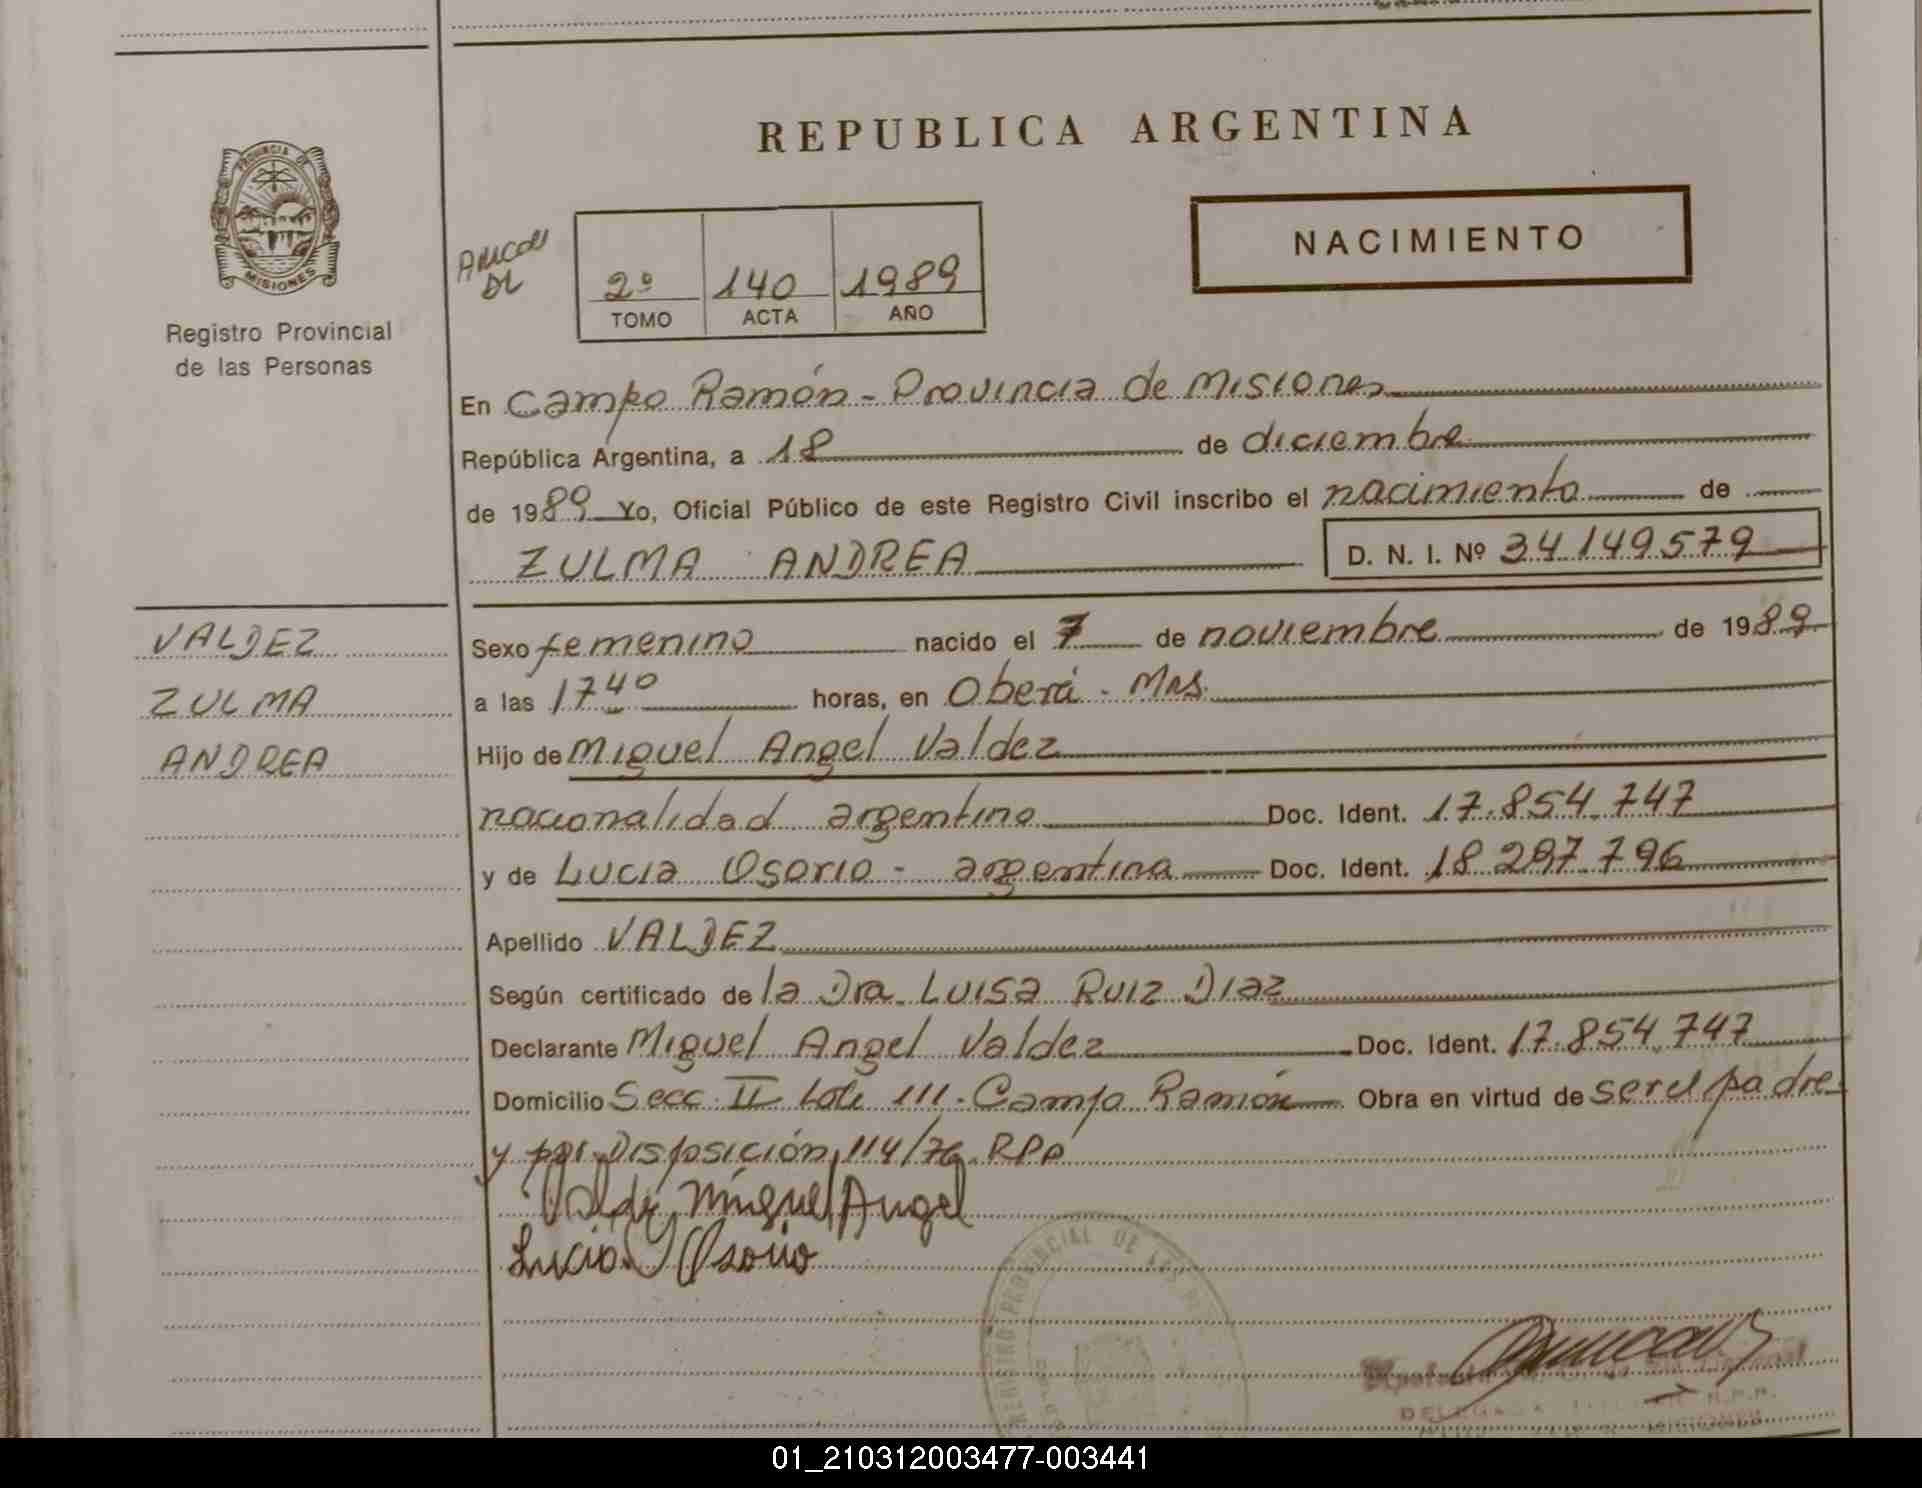 REPUBLICA ARGENTINA
PROVINCIA DE
MISIONES
Registro Provincial
de las Personas
NACIMIENTO
2º 140 1989
TOMO ACTA AÑO
En Campo Ramón - Provincia de Misiones
República Argentina, a 18 de diciembre
de 1989 Yo, Oficial Público de este Registro Civil inscribo el nacimiento de
ZULMA ANDREA D. N. I. Nº 34149579
VALDEZ
ZULMA
ANDREA
Sexo femenino nacido el 7 de noviembre de 1989
a las 17 40 horas, en Oberá - Mns.
Hijo de Miguel Angel Valdez
nacionalidad argentino Doc. Ident. 17.854.747
y de Lucia Osorio - argentina Doc. Ident. 18 297.796
Apellido VALDEZ
Según certificado de la Dra. Luisa Ruiz Diaz
Declarante Miguel Angel Valdez Doc. Ident. 17.854.747
Domicilio Secc. II Lote 111 - Campo Ramón Obra en virtud de ser el padre
y por Disposición 114/76 RPP
Valdez Miguel Angel
Lucia Osorio
REGISTRO PROVINCIAL DE LAS
01_210312003477-003441